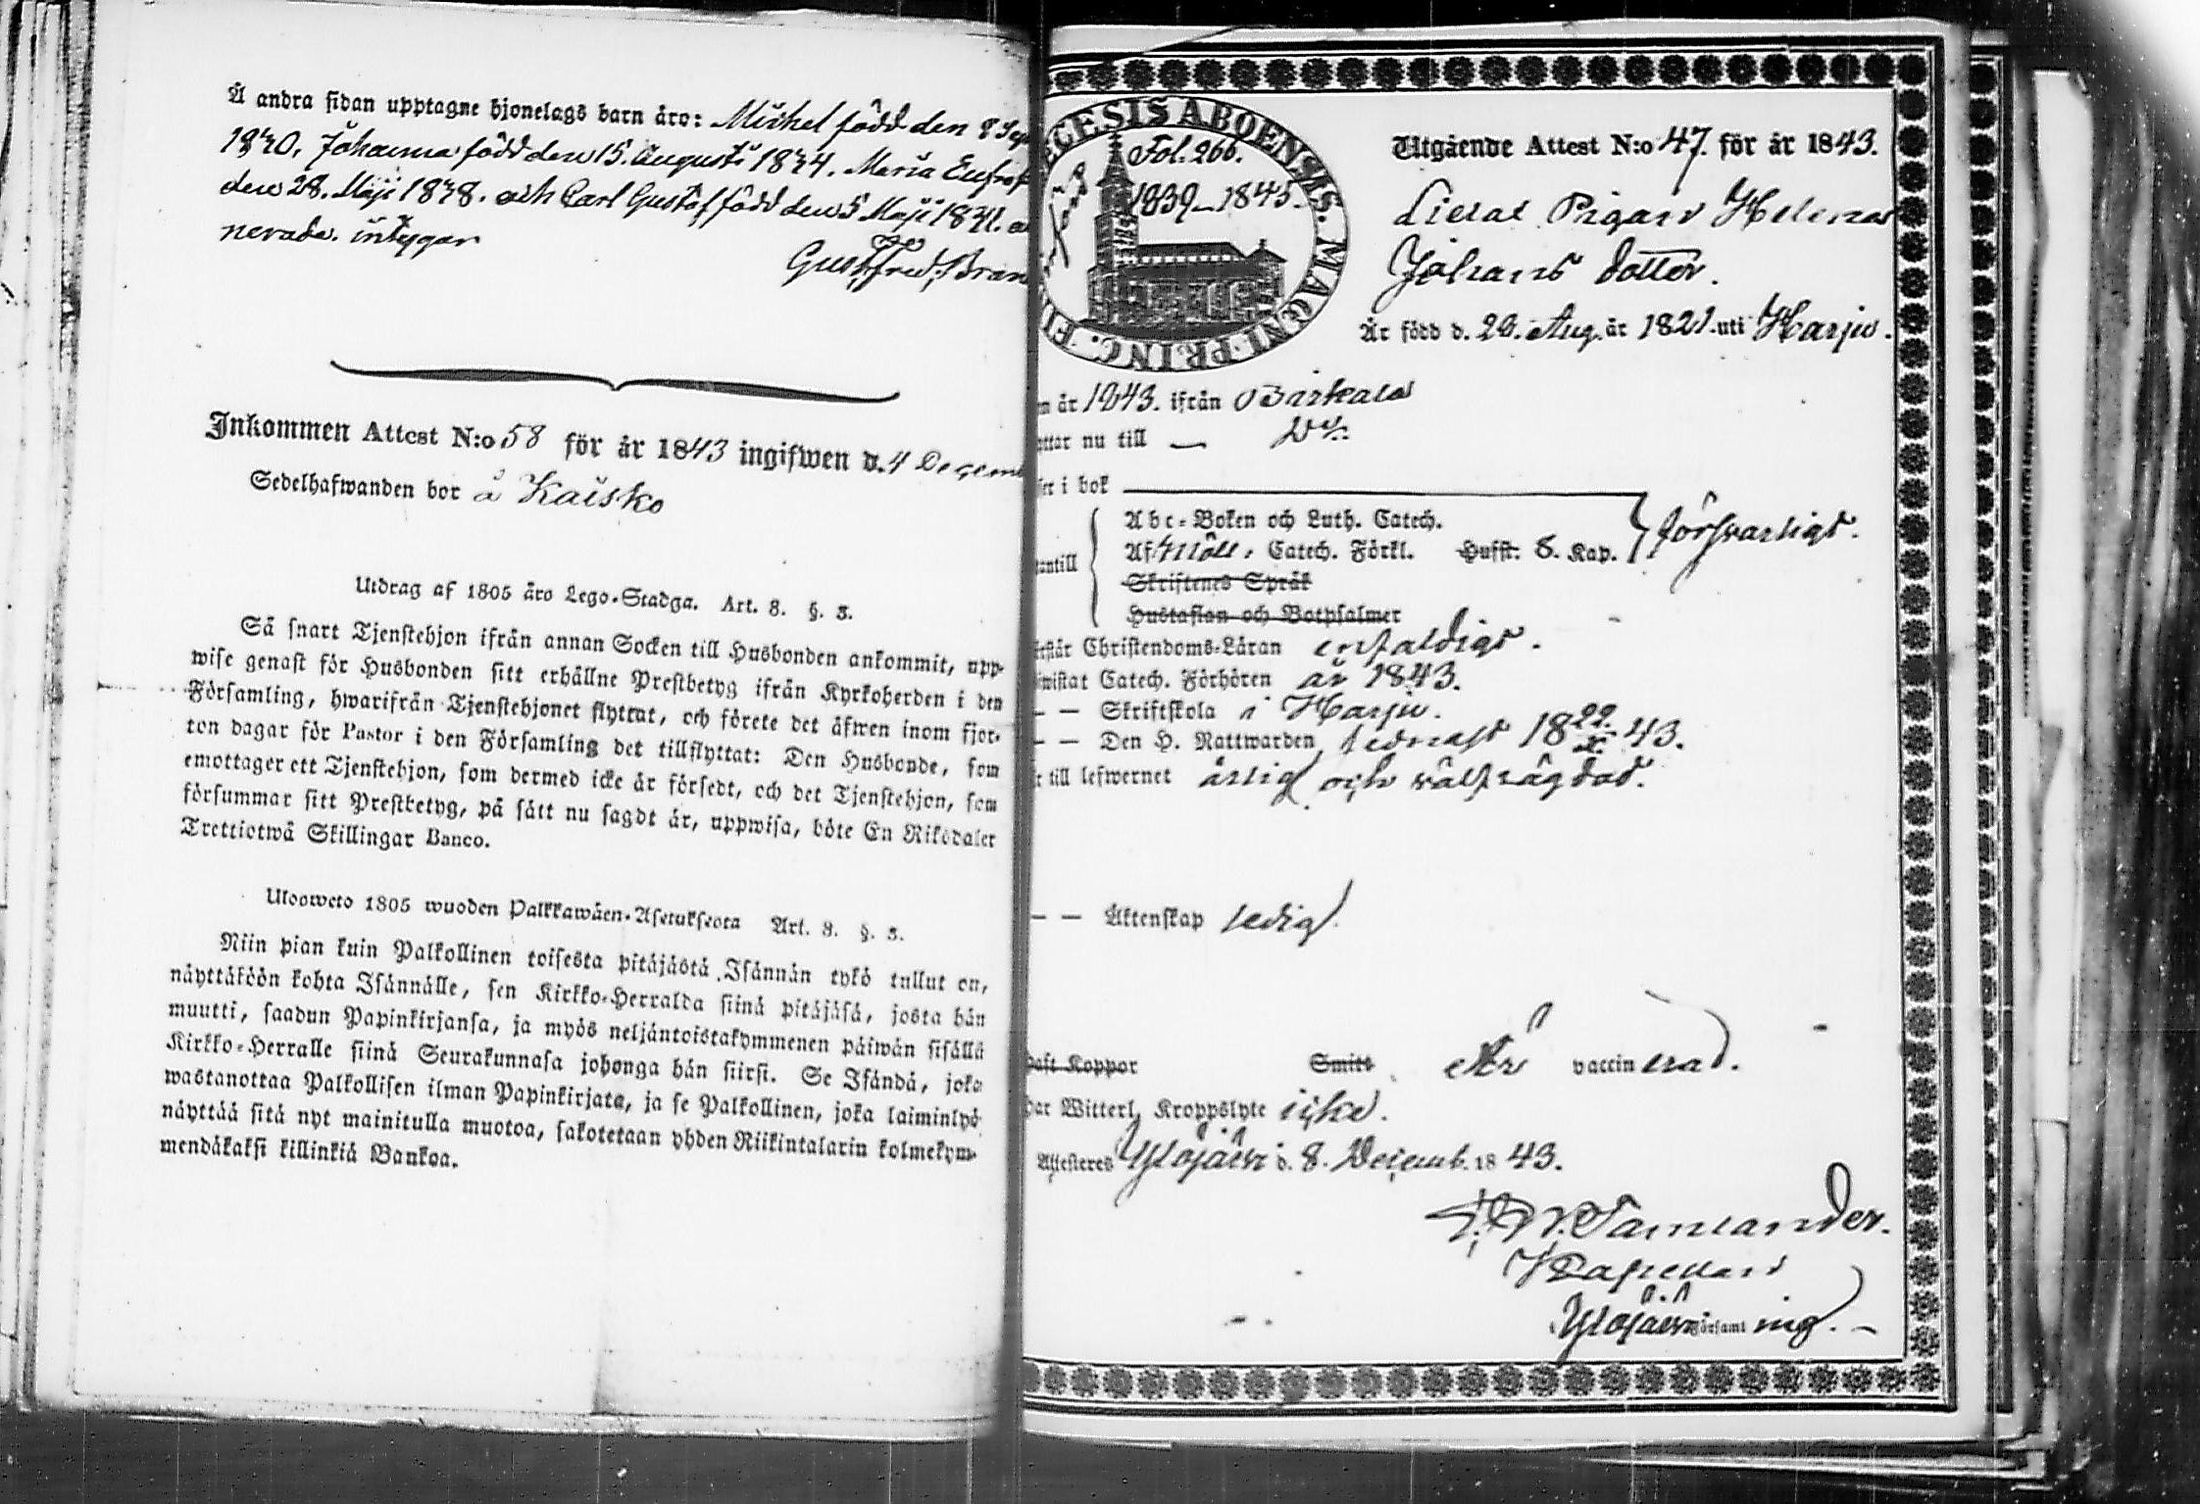 Å andra sidan upptagne hjonelags barn äro: Michel född den 8 Sep
1830, Johanna född den 15. Augusti 1834. Maria Eufros
den 28. Maji 1838. och Carl Gustaf född den 5 Maji 1841.
nerade. intygar
Gust. Fred. Bran
Inkommen Attest N:o 58 för år 1843 ingifwen d. 4 Decem
Sedelhafwanden bor å Kaisko
Utdrag af 1805 års Lego-Stadga. Art. 8. §. 3.
Så snart Tjenstehjon ifrån annan Socken till Husbonden ankommit, upp-
wise genast för Husbonden sitt erhållne Prestbetyg ifrån Kyrkoherden i den
Församling, hwarifrån Tjenstehjonet flyttat, och förete det äfwen inom fjor-
ton dagar för Pastor i den Församling det tillflyttat: Den Husbonde, som
emottager ett Tjenstehjon, som dermed icke är försedt, och det Tjenstehjon, som
försummar sitt Prestbetyg, på sätt nu sagdt är, uppwisa, böte En Riksdaler
Trettiotwå Skillingar Banco.
Uloosweto 1805 wuoden Palkkawäen-Asetuksesta Art. 8. §. 3.
Niin pian kuin Palkollinen toisesta pitäjästä Isännän tykö tullut on,
näyttäköön kohta Isännälle, sen Kirkko-Herralda siinä pitäjäsä, josta hän
muutti, saadun Papinkirjansa, ja myös neljäntoistakymmenen päiwän sisällä
Kirkko-Herralle siinä Seurakunnasa johonga hän siirsi. Se Isändä, joka
wastanottaa Palkollisen ilman Papinkirjata, ja se Palkollinen, joka laiminlyö
näyttää sitä nyt mainitulla muotoa, sakotetaan yhden Riikintalarin kolmekym-
mendäkaksi killinkiä Bankoa.
ECESIS ABOENSIS. MAGNI PRINC.
Fol. 266.
1839-1845.
Utgående Attest N:o 47. för år 1843.
Pigan Helena
Johans dotter.
Är född d. 26. Aug. år 1821 uti Harju.
n år 1843. ifrån Birkala
ttar nu till —
ser i bok
Abc-Boken och Luth. Catech.
Af Möll. Catech. Förkl. Husst. 8. Kap. försvarligt.
antill
Skriftenes Språk
Hustaflan och Botpsalmer
rstår Christendoms-Läran enfaldigt.
iwistat Catech. Förhören år 1843.
— — Skriftskola i Harju.
— — Den H. Nattwarden sednast 18 22/X 43.
r till lefwernet ärlig och välfrägdad.
— — Äktenskap ledig.
haft Koppor Smitt Är vaccinerad.
har Witterl. Kroppslyte icke.
Attesteras Ylöjärvi d. 8. Decemb. 1843.
Tamlander.
Kapellan i
Ylöjärvi Församling.